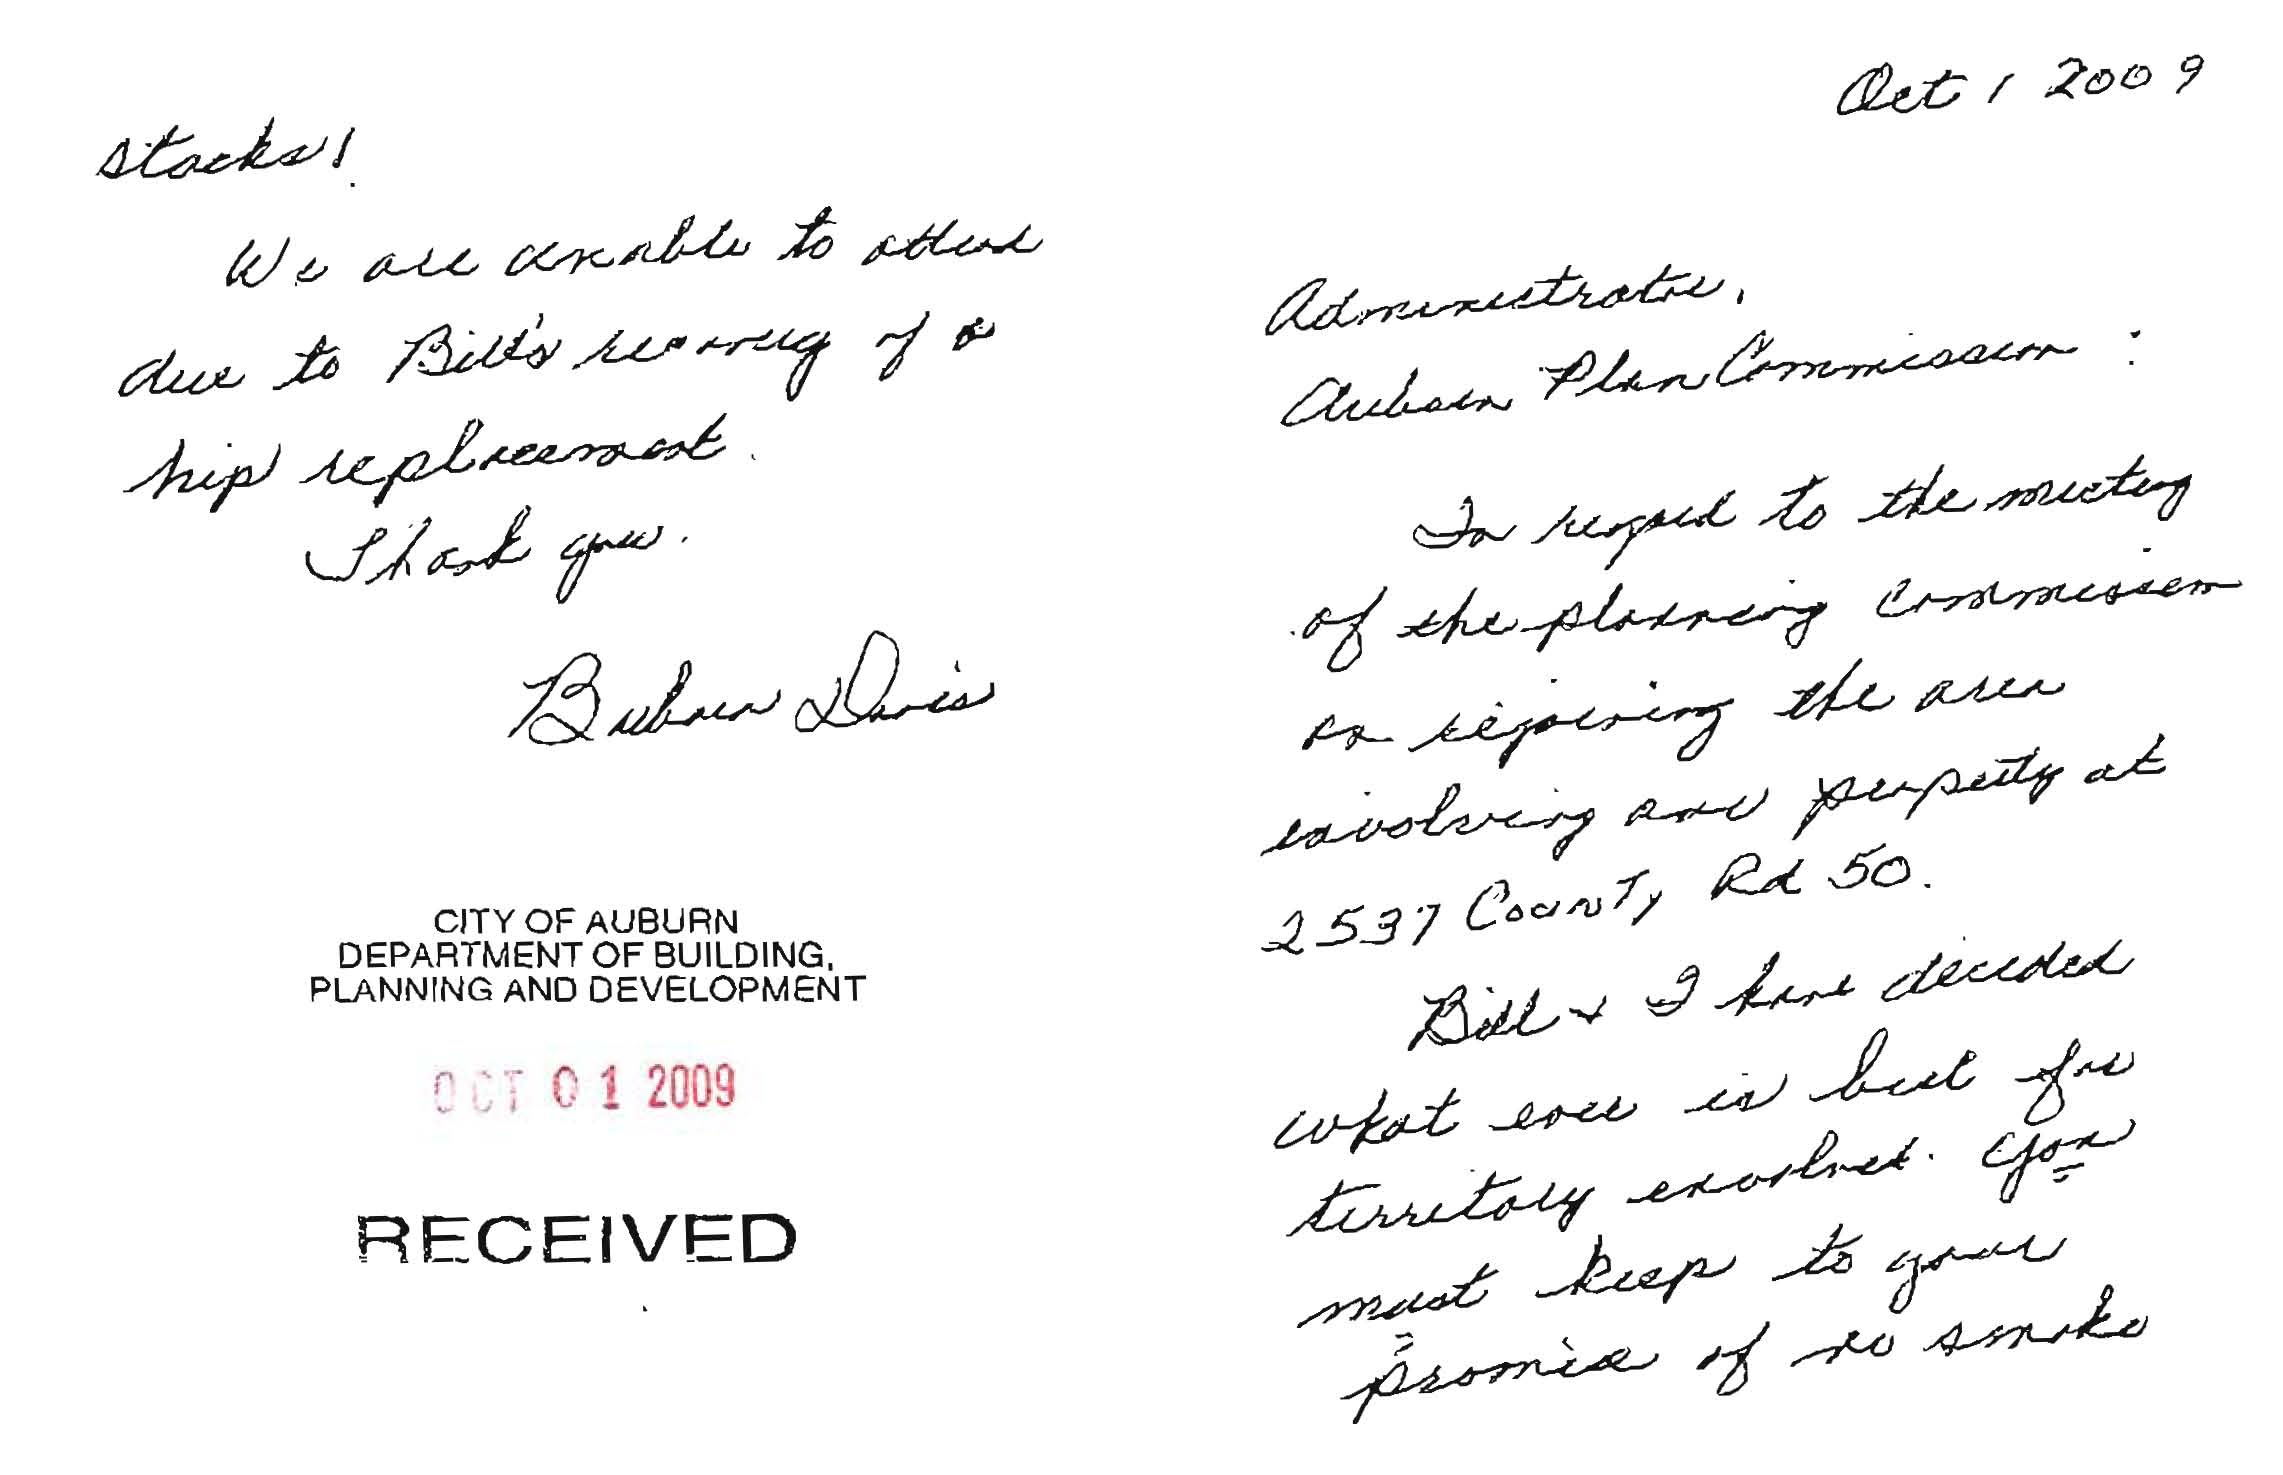 Oct 1 2009
Administrator,
Auburn Plan Commission :
In regard to the meeting
of the planning commission
on the area
involving our property at
2537 County Rd 50.
Bill + I have decided
what ever is best for
territory involved. You
must keep to your
promise of no smoke
stacks!
We are unable to attend
due to Bill's of a
hip replacement.
Thank you.
Davis
CITY OF AUBURN
DEPARTMENT OF BUILDING,
PLANNING AND DEVELOPMENT
OCT 01 2009
RECEIVED